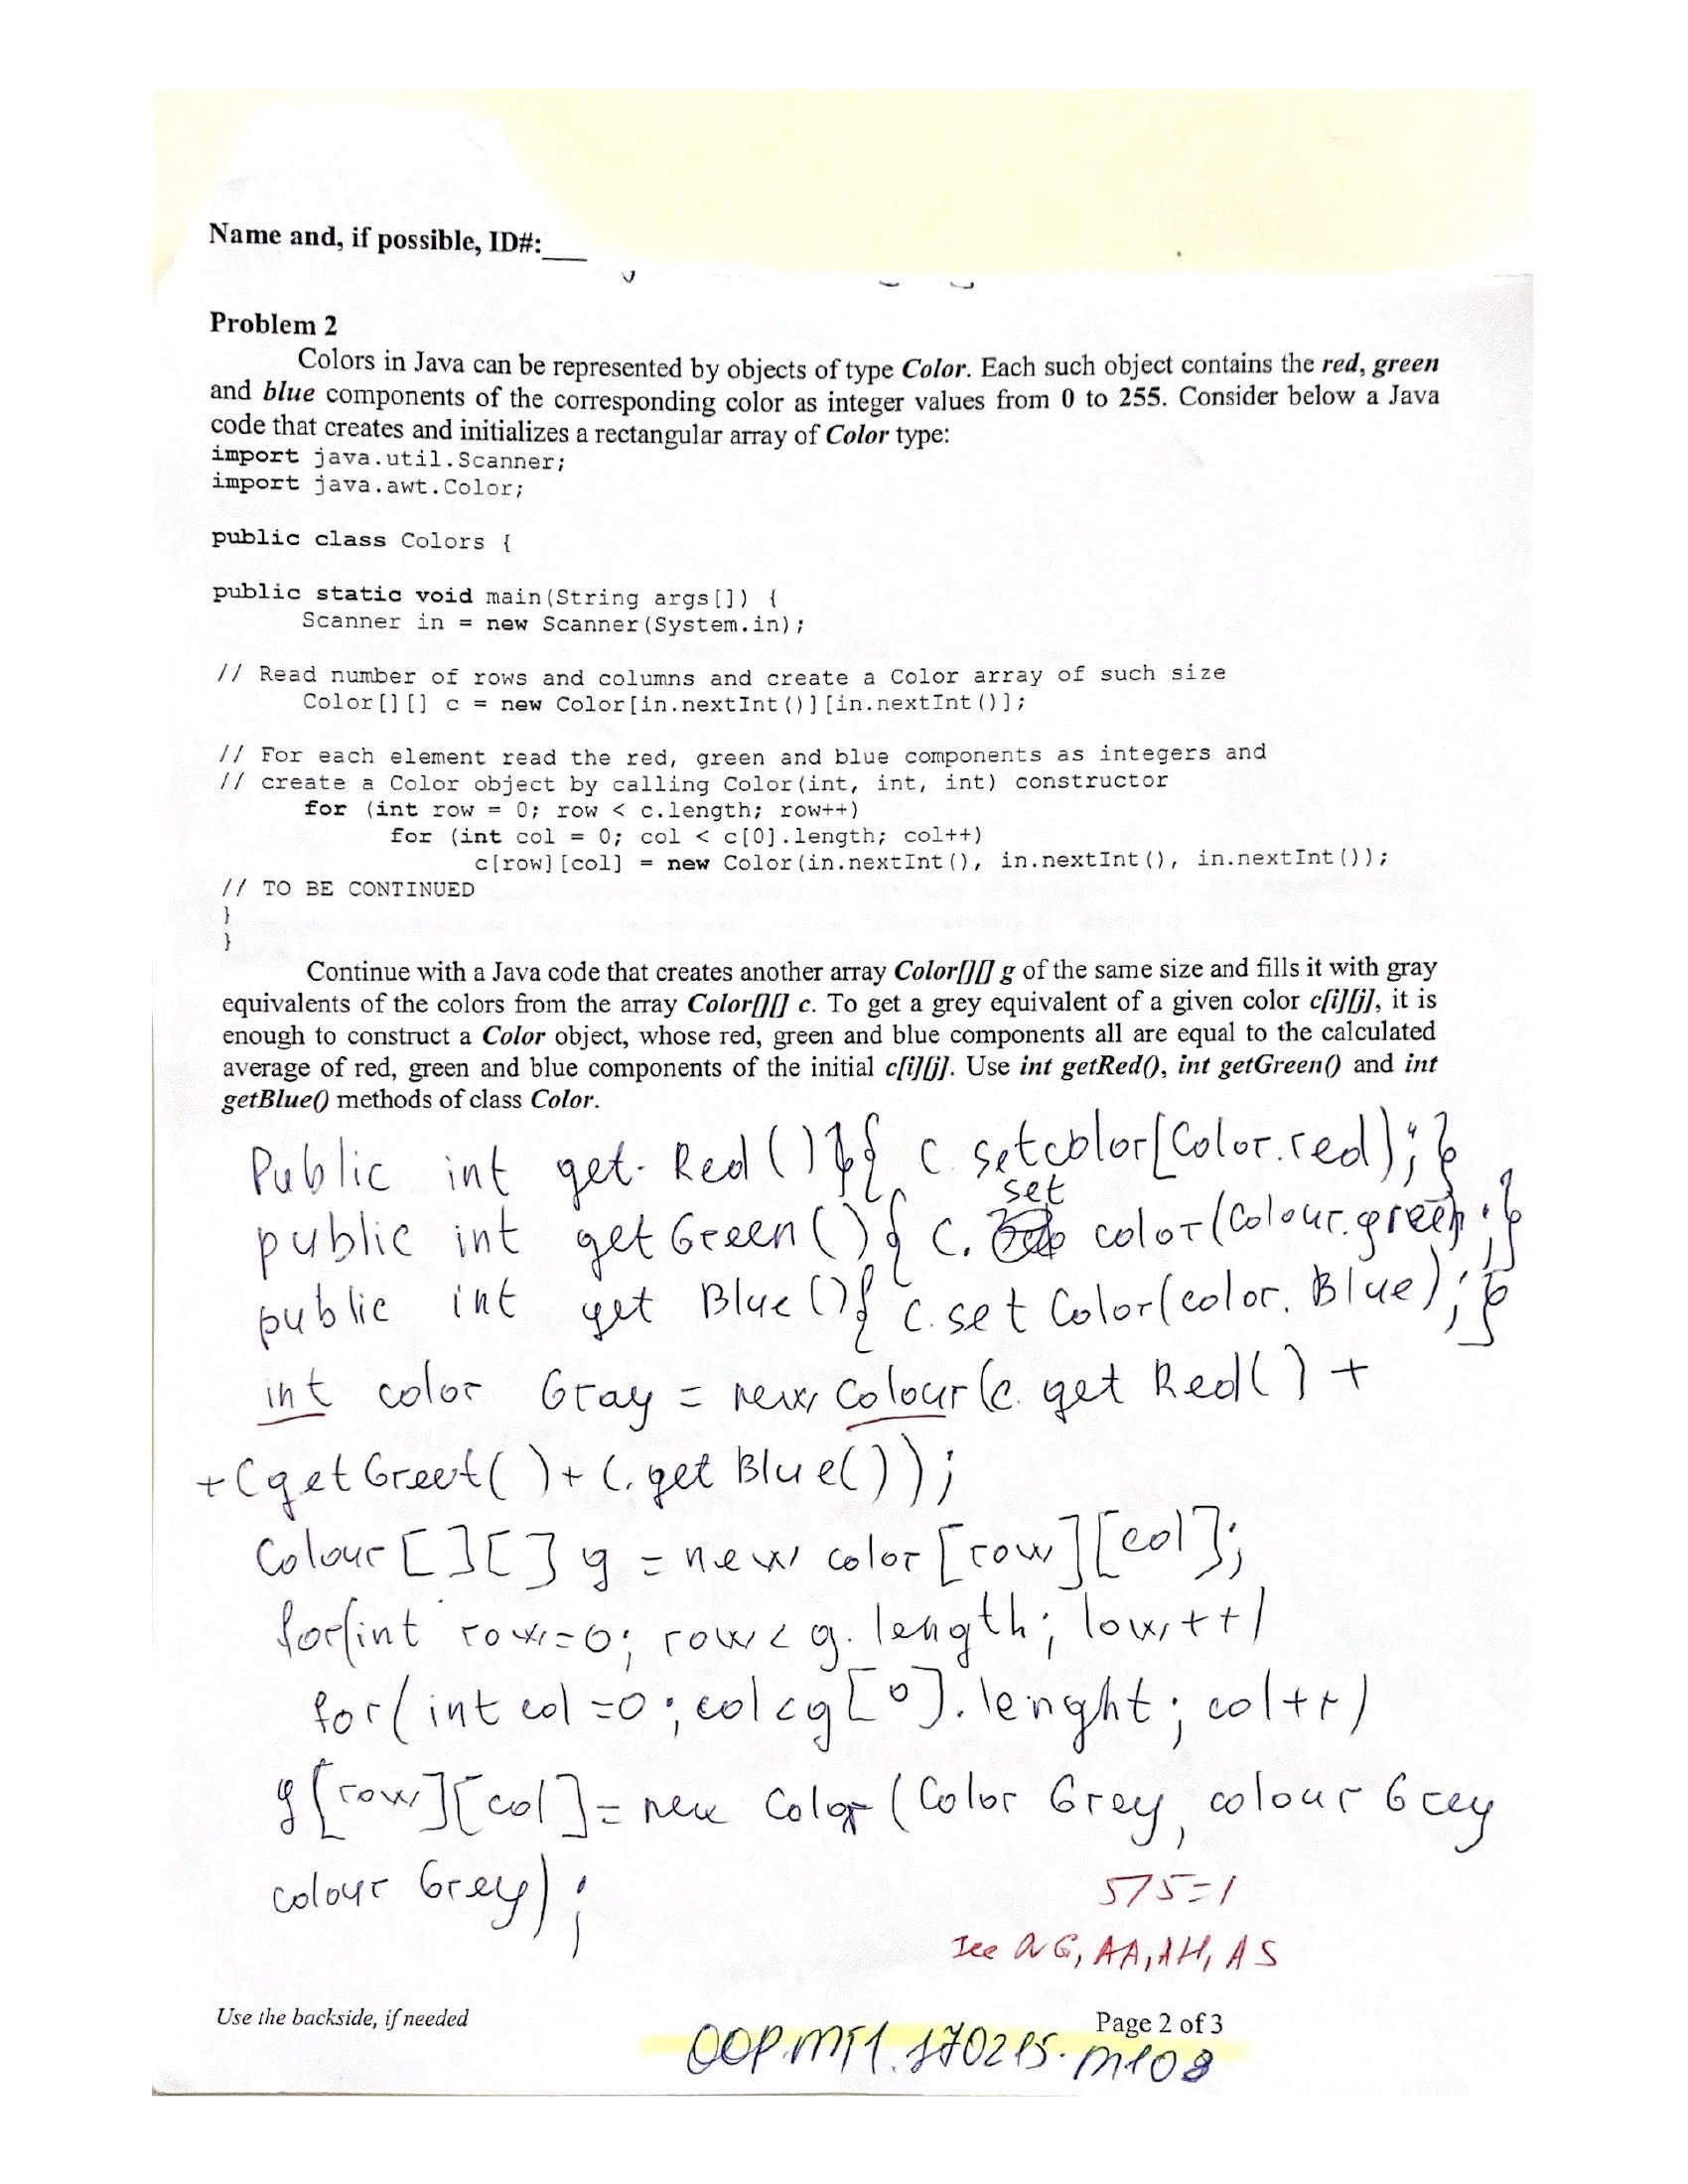 Name and, if possible, ID#:___
Problem 2
Colors in Java can be represented by objects of type Color. Each such object contains the red, green
and blue components of the corresponding color as integer values from 0 to 255. Consider below a Java
code that creates and initializes a rectangular array of Color type:
import java.util.Scanner;
import java.awt.Color;
public class Colors {
public static void main(String args[]) {
Scanner in = new Scanner(System.in);
// Read number of rows and columns and create a Color array of such size
Color[][] c = new Color[in.nextInt()][in.nextInt()];
// For each element read the red, green and blue components as integers and
// create a Color object by calling Color(int, int, int) constructor
for (int row = 0; row < c.length; row++)
for (int col = 0; col < c[0].length; col++)
c[row][col] = new Color(in.nextInt(), in.nextInt(), in.nextInt());
// TO BE CONTINUED
}
}
Continue with a Java code that creates another array Color[][] g of the same size and fills it with gray
equivalents of the colors from the array Color[][] c. To get a grey equivalent of a given color c[i][j], it is
enough to construct a Color object, whose red, green and blue components all are equal to the calculated
average of red, green and blue components of the initial c[i][j]. Use int getRed(), int getGreen() and int
getBlue() methods of class Color.
Public int get Red () { c. setcolor[Color.red); }
public int get Green () { c. set color(Colour.green ; }
public int get Blue () { c. set Color(color. Blue); }
int color Gray = new Colour(c. get Red() +
+ C get Greet() + C. get Blue());
Colour [ ][ ] g = new color [row][col];
for(int row=0; row < g. length; low++)
for(int col =0; col<g[0]. lenght; col++)
g[row][col] = new Color (Color Grey, colour Grey
colour Grey);
575=1
See G, AA, AH, AS
Use the backside, if needed
Page 2 of 3
OOP.MT1.170215.M108